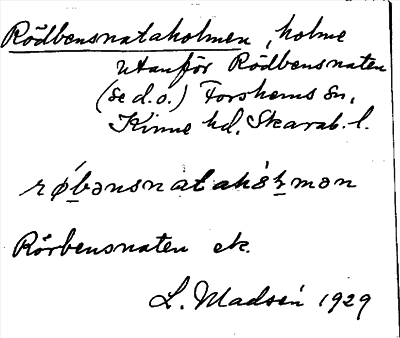 Rödbensnataholmen, holme
utanför Rödbensnaten
(se d.o.) Forshems sn,
Kinne hd, Skarab. l.
Rörbensnaten ek.
L. Madsén 1929